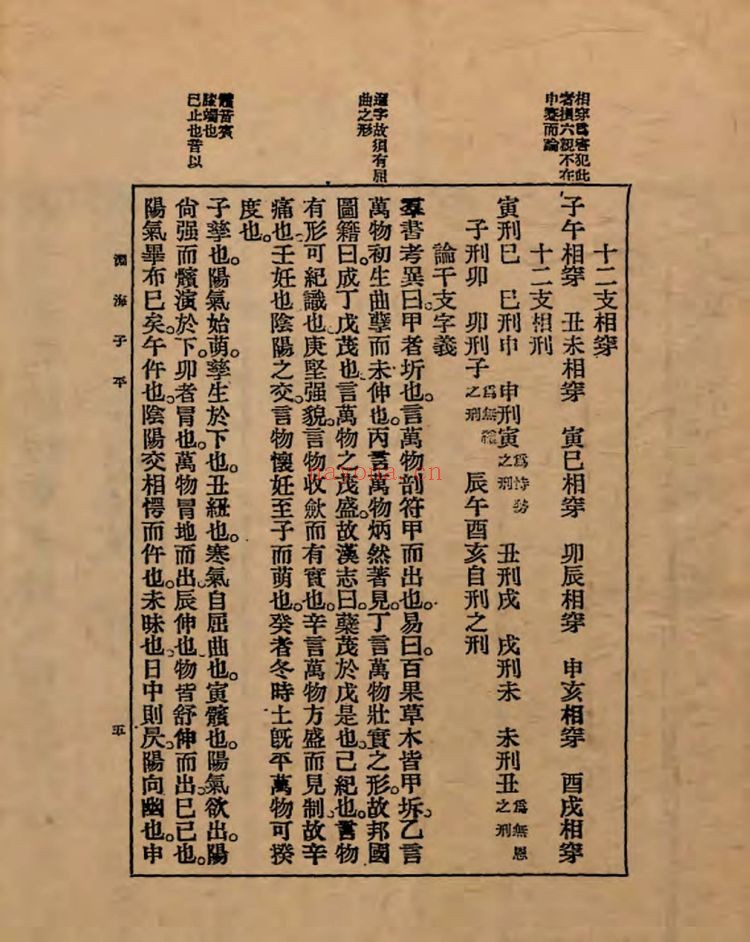 相穿爲害犯此
者損六親不在
申變而論
十二支相穿
子午相穿　丑未相穿　寅巳相穿　卯辰相穿　申亥相穿　酉戌相穿
十二支相刑
寅刑巳　巳刑申　申刑寅爲恃势之刑　丑刑戌　戌刑未　未刑丑爲無恩之刑
子刑卯　卯刑子爲無禮之刑　辰午酉亥自刑之刑
論干支字義
字故須有屈
曲之形
羣書考異曰。甲者坼也。言萬物剖符甲而出也。易曰。百果草木皆甲坼。乙言
萬物初生曲孽而未伸也。丙言萬物炳然著見。丁言萬物壯實之形。故邦國
圖籍曰。成丁戊茂也。言萬物之茂盛。故漢志曰。蘖茂於戊是也。己紀也。言物
有形可紀識也。庚堅强貌。言物收斂而有實也。辛言萬物方盛而見制。故辛
痛也。壬妊也陰陽之交。言物懷妊至子而萌也。癸者冬時土旣平萬物可揆
度也。
髕音賓
膝端也
巳止也音以
子孳也。陽氣始萌。孳生於下也。丑紐也。寒氣自屈曲也。寅髕也。陽氣欲出。陽
尙强而髕演於下。卯者冒也。萬物冒地而出。辰伸也。物皆舒伸而出。巳已也。
陽氣畢布已矣。午仵也。陰陽交相愕而仵也。未昧也。日中則昃。陽向幽也。申
淵海子平
平
nayona.cn